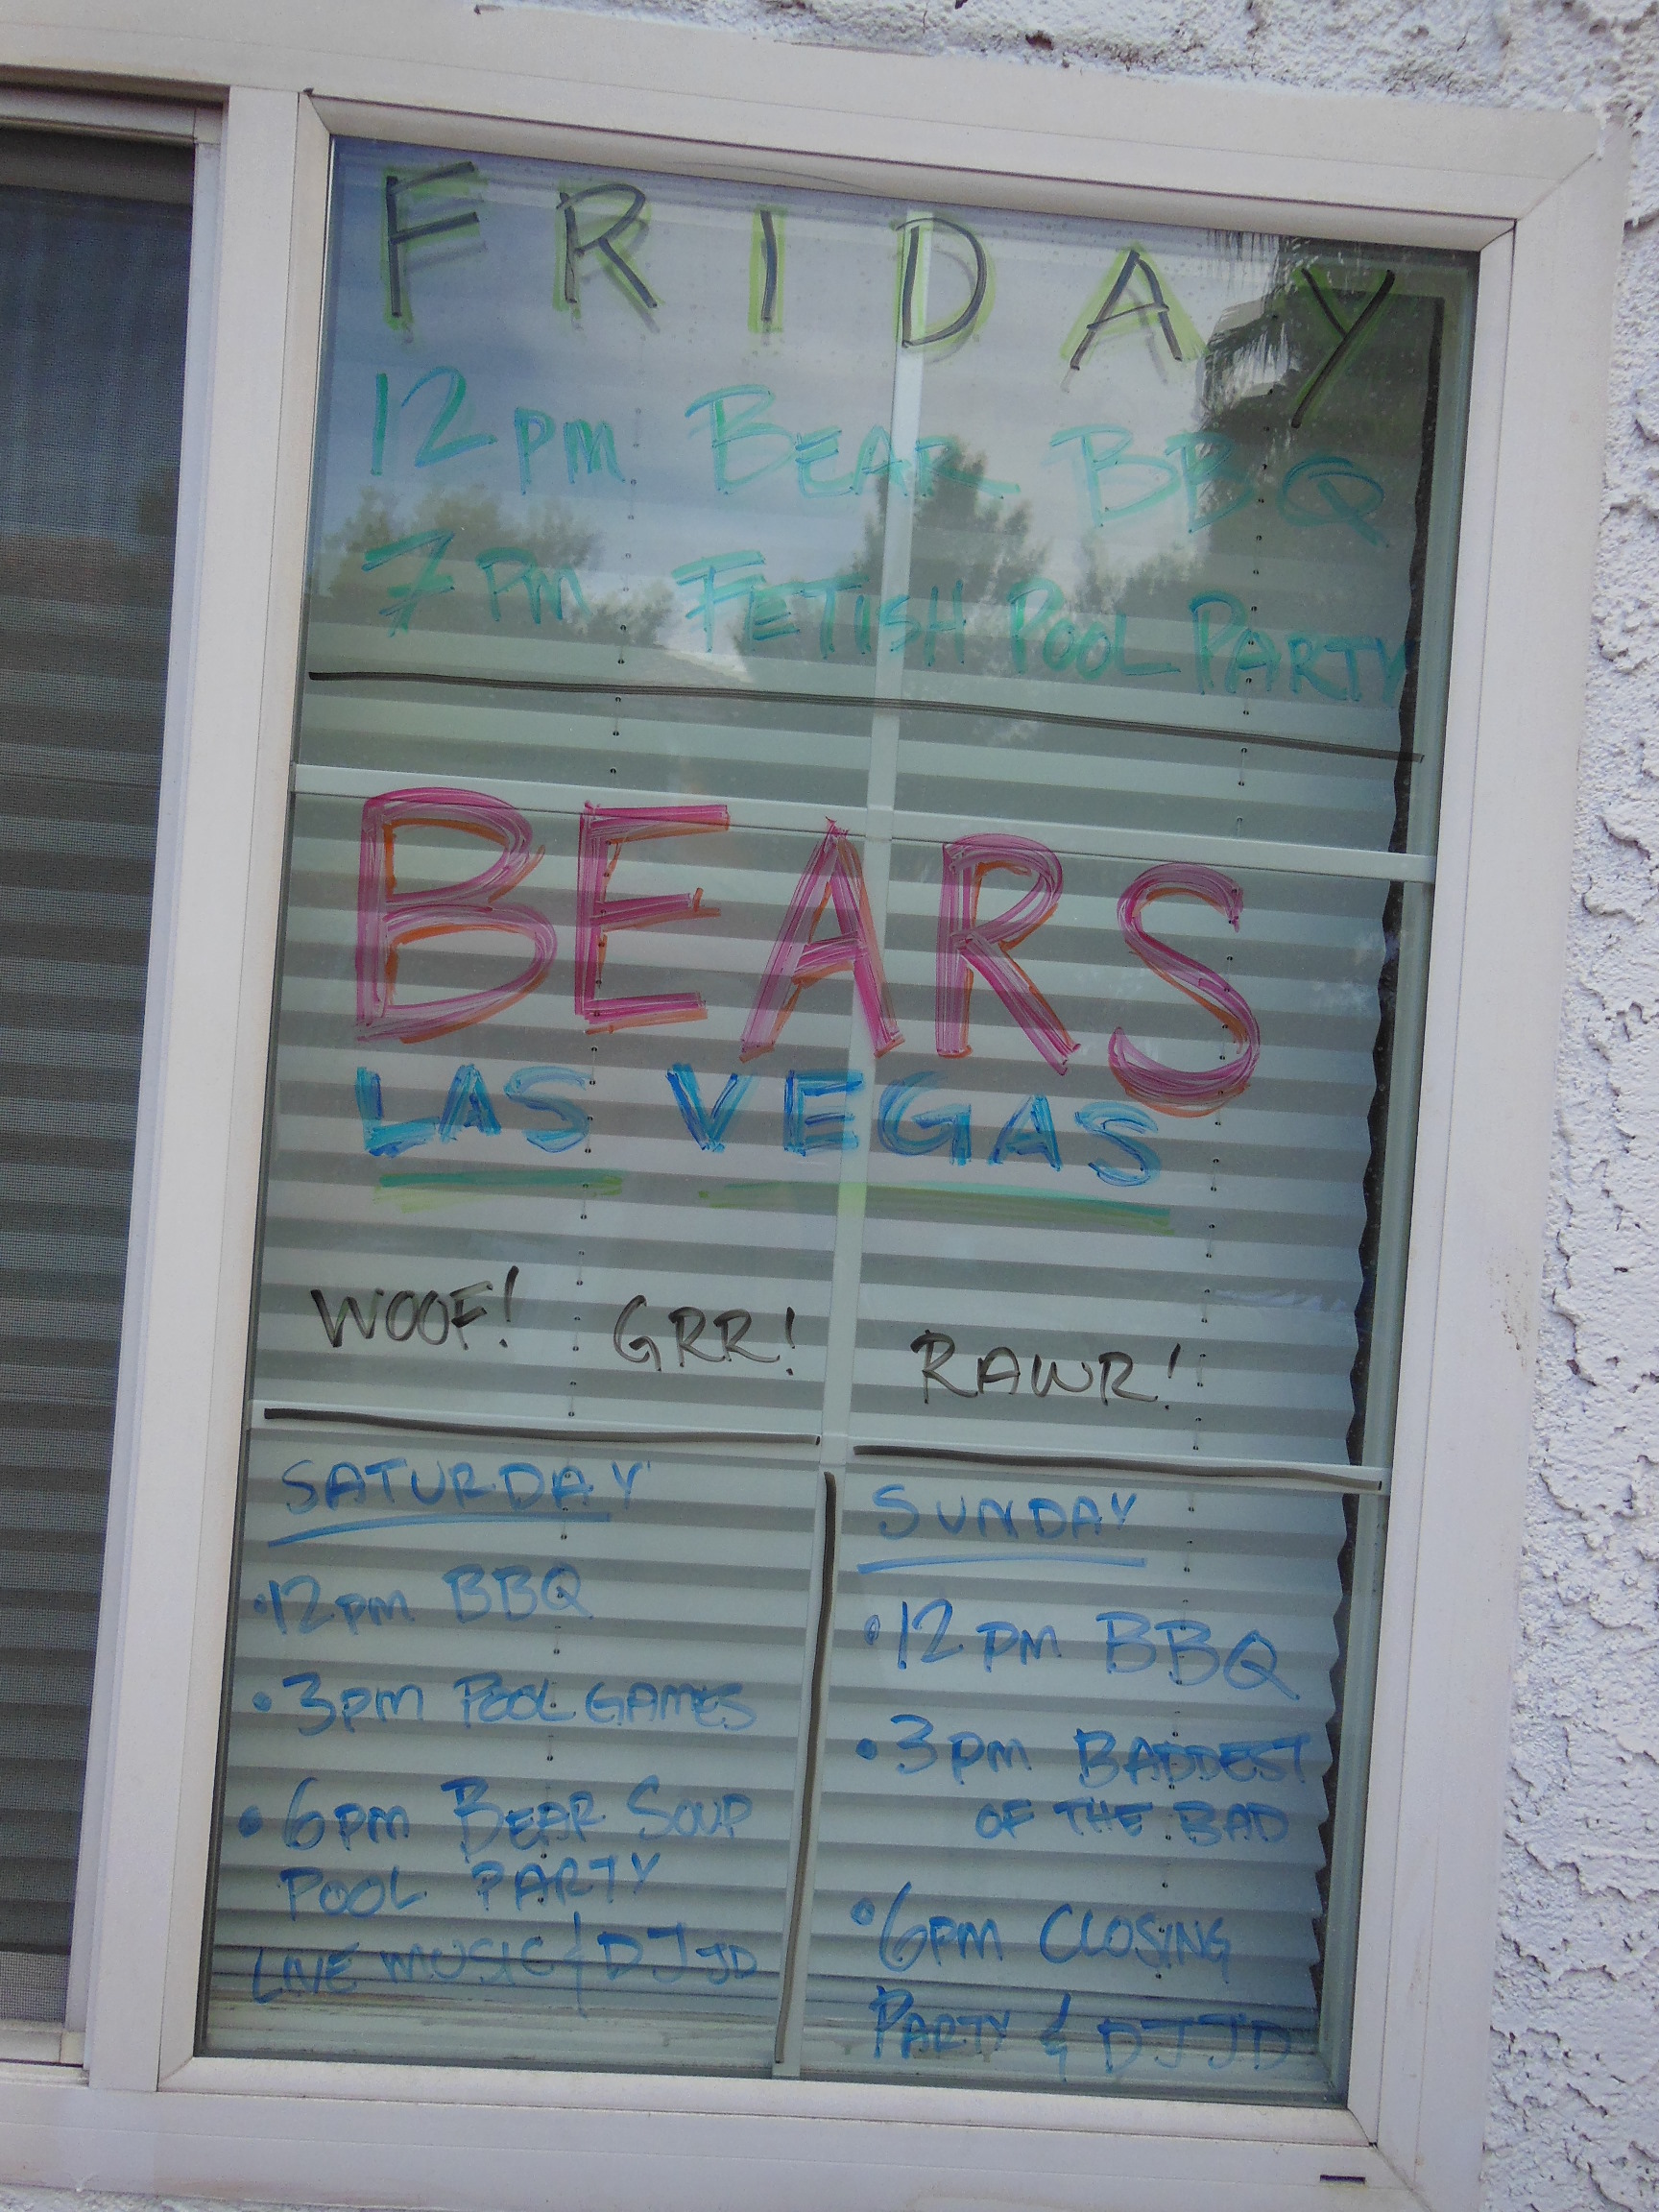 FRIDAY
12pm BEAR BBQ
7pm FETISH POOL PARTY
BEARS
LAS VEGAS
WOOF! GRR! RAWR!
SATURDAY
• 12pm BBQ
• 3pm POOL GAMES
• 6pm BEAR SOUP
POOL PARTY
LIVE MUSIC & DJ JD
SUNDAY
• 12pm BBQ
• 3pm BADDEST
OF THE BAD
• 6pm CLOSING
PARTY & DJ JD